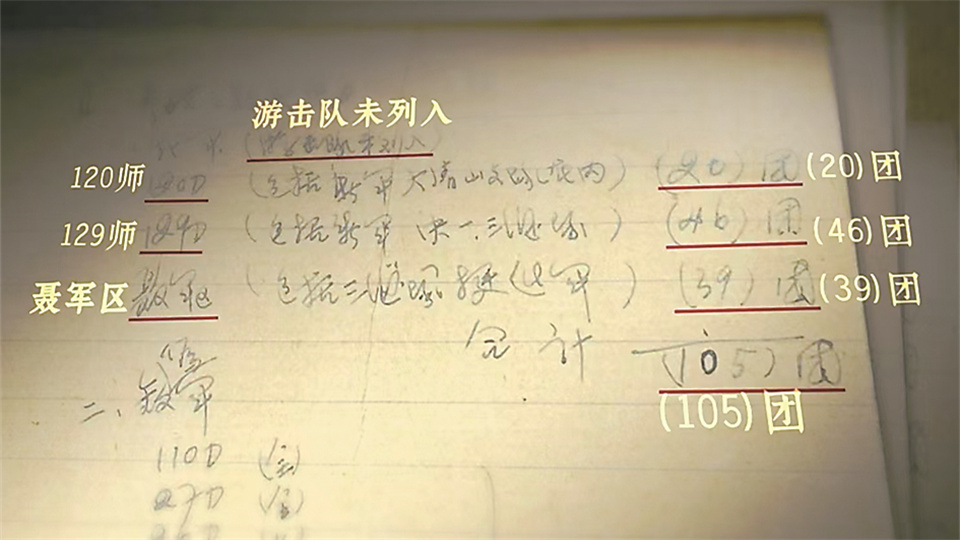 游击队未列入
(游击队未列入)
120师 120D (包括新军大青山支队在内) (20)团 (20)团
129师 129D (包括新军决一、三纵队) (46)团 (46)团
聂军区 聂军区 (包括三纵队挺进军) (39)团 (39)团
合计 (105)团
(105)团
二、
110D
27D